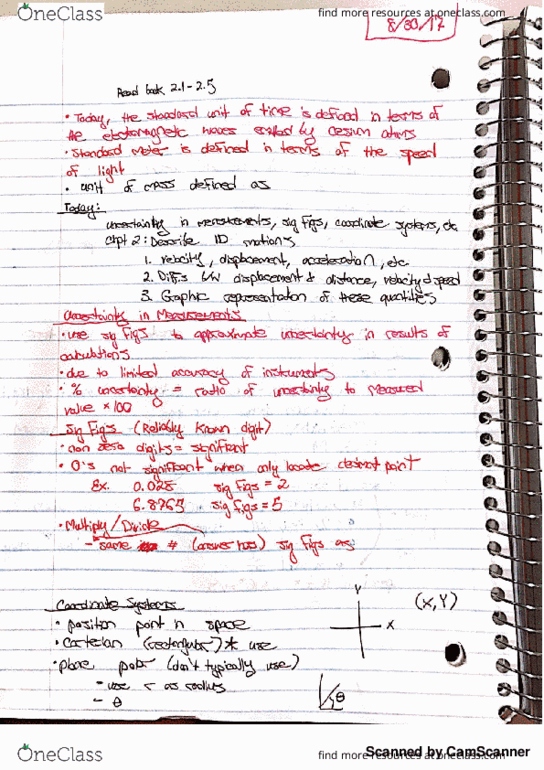 OneClass
find more resources at oneclass.com
8/30/17
Read book 2.1-2.5
• Today, the standard unit of time is defined in terms of
the electromagnetic waves emitted by cesium atoms
• Standard meter is defined in terms of the speed
of light
• unit of mass defined as
Today:
uncertainty in measurements, sig figs, coordinate systems, etc
Chpt 2: Describe 1D motions
1. velocity, displacement, acceleration, etc
2. Diffs b/w displacement & distance, velocity & speed
3. Graphic representation of these quantities
Uncertainty in Measurements
• use sig figs to approximate uncertainty in results of
calculations
• due to limited accuracy of instruments
• % uncertainty = ratio of uncertainty to measured
value × 100
Sig Figs (Reliably known digit)
• non zero digits = significant
• 0's not significant when only locate decimal point
Ex. 0.025 sig figs = 2
6.8765 sig figs = 5
• Multiply/Divide
- same # (answer has) sig figs as
Coordinate Systems
• position point in space
• cartesian (rectangular) * use
• plane polar (don't typically use)
- use r as radius
- θ
Y
X
(X,Y)
θ
Scanned by CamScanner
OneClass
find more resources at oneclass.com